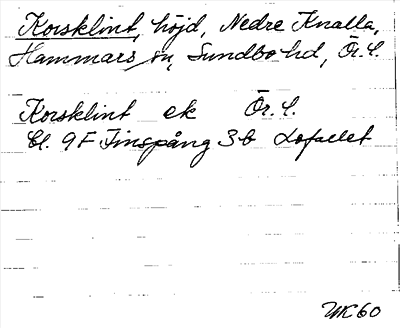 Korsklint, höjd, Nedre Knalla,
Hammars sn, Sundbo hd, Ör. l.
Korsklint ek Ör. l.
bl. 9F Finspång 3b Lofallet
UK 60